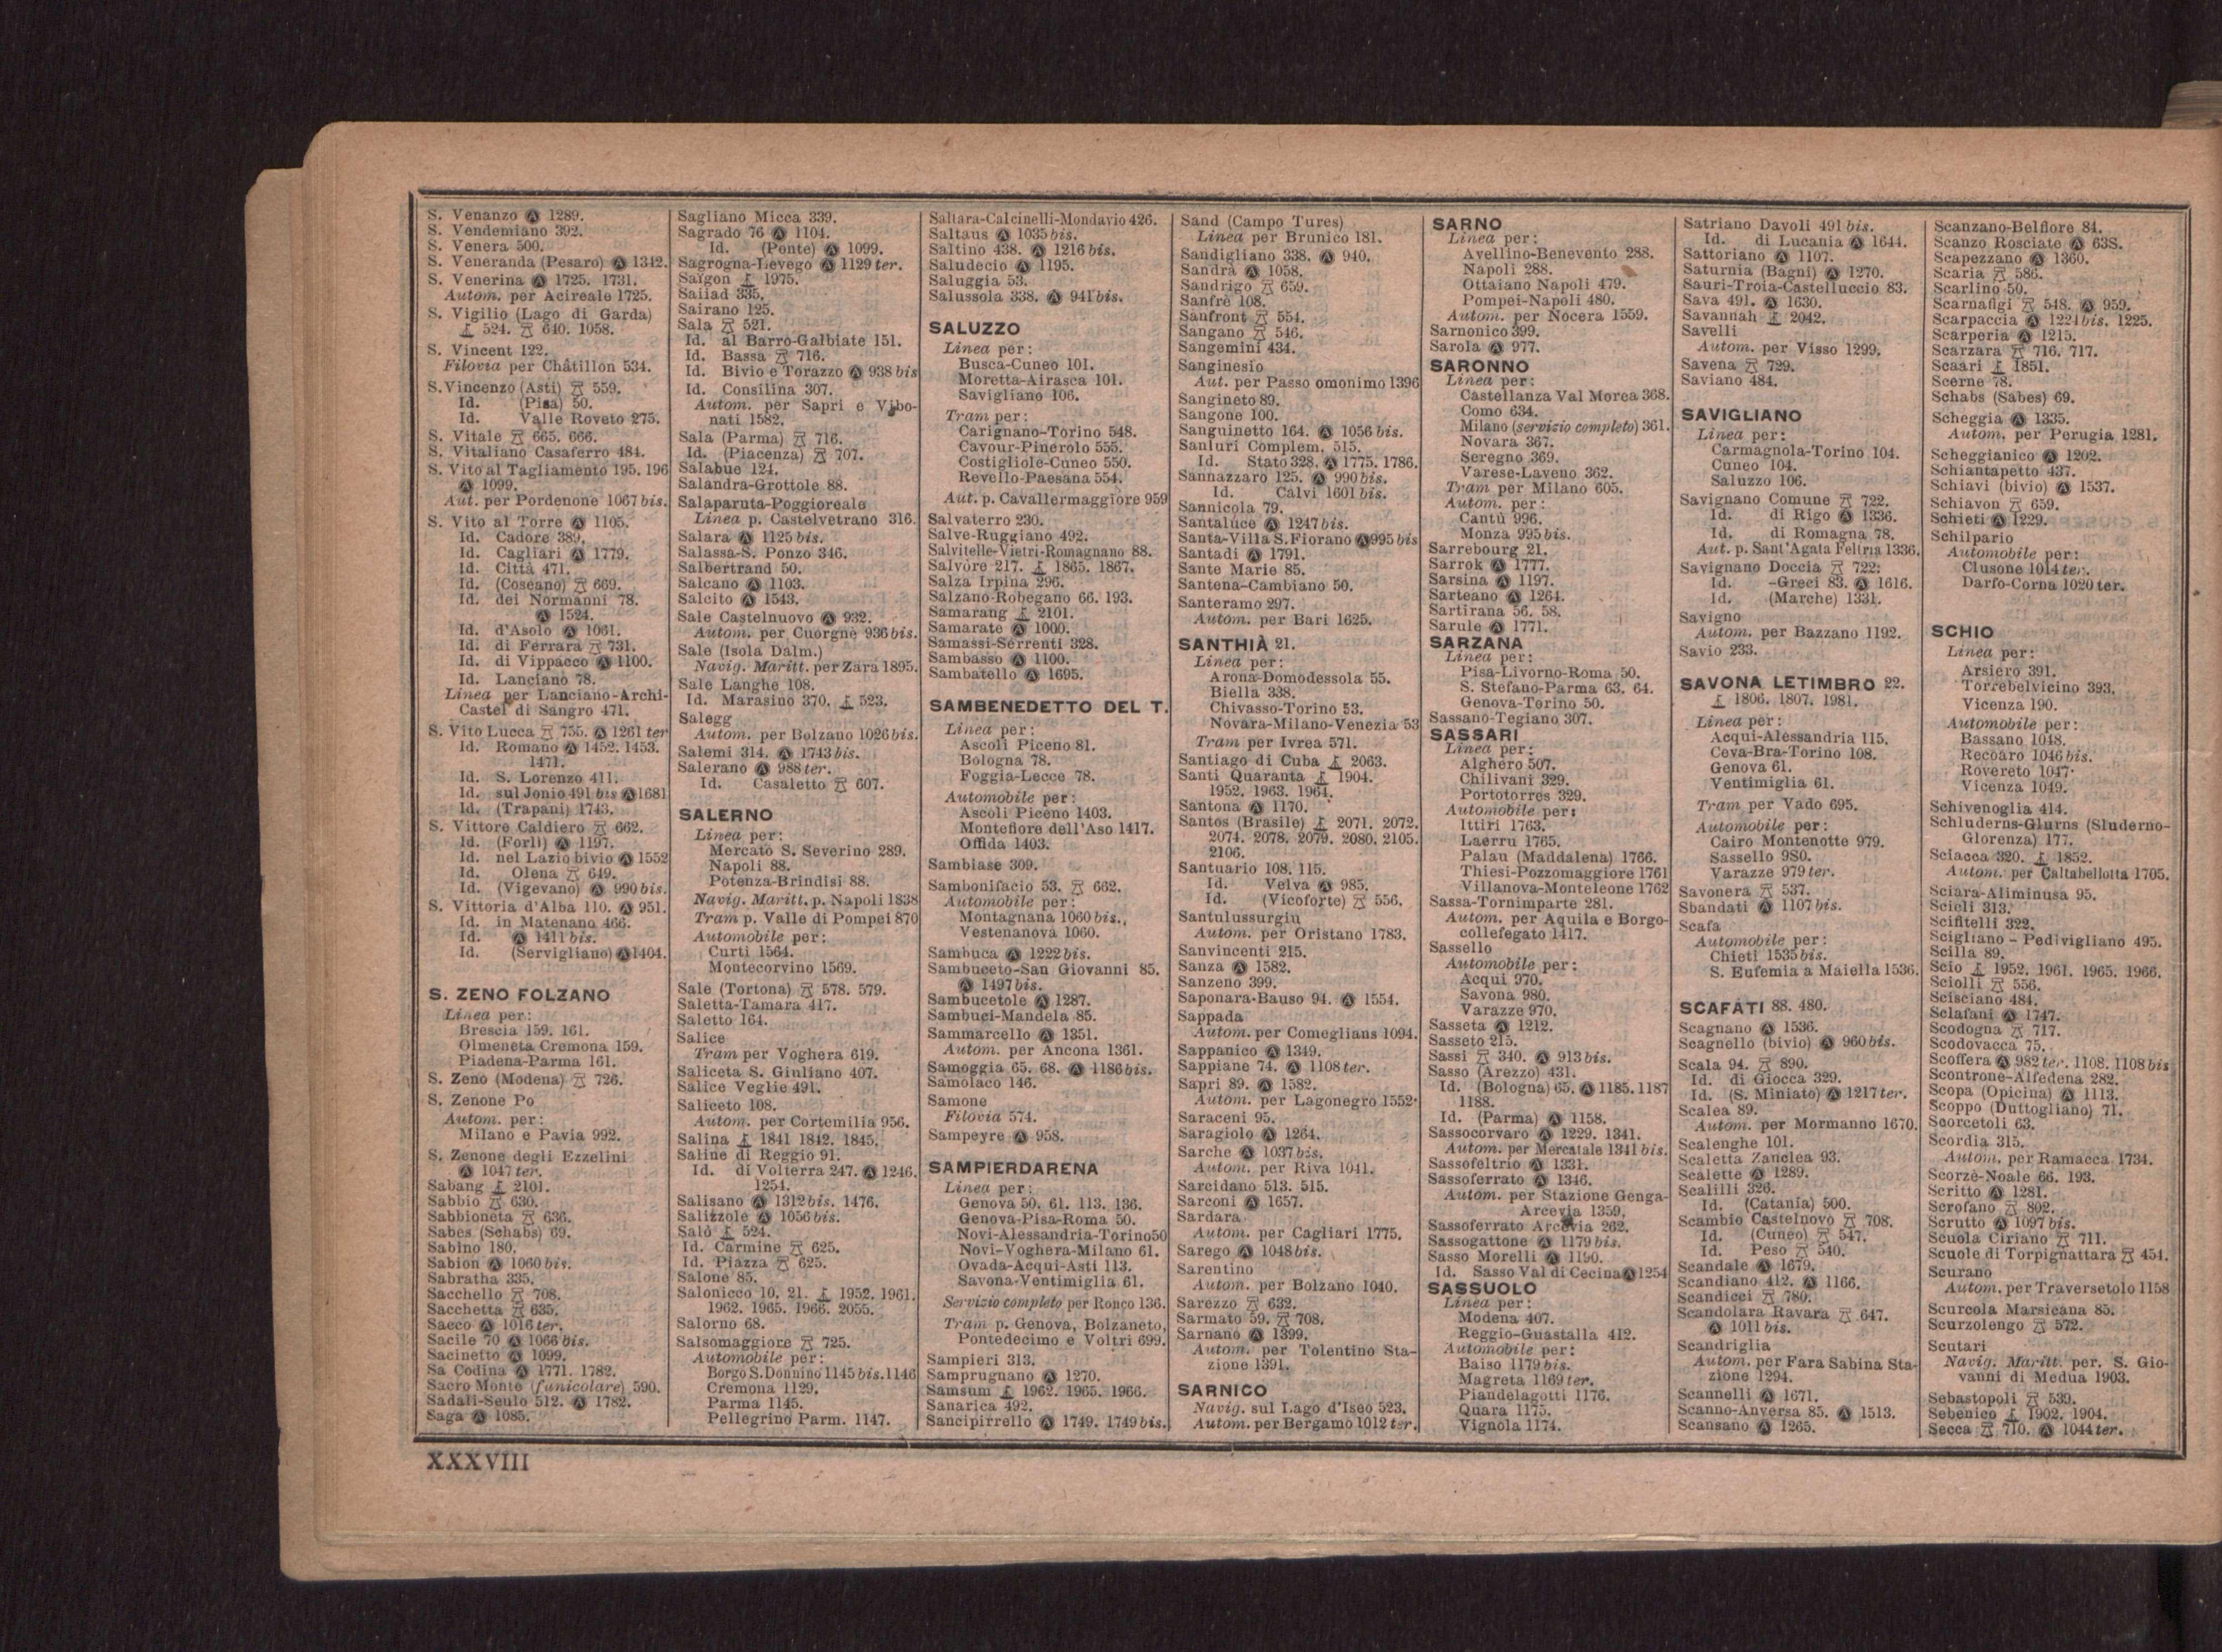 S. Venanzo Ⓐ 1289.
S. Vendemiano 392.
S. Venera 500.
S. Veneranda (Pesaro) Ⓐ 1342.
S. Venerina Ⓐ 1725. 1731.
Autom. per Acireale 1725.
S. Vigilio (Lago di Garda)
524. 640. 1058.
S. Vincent 122.
Filovia per Châtillon 534.
S. Vincenzo (Asti) 559.
Id. (Pisa) 50.
Id. Valle Roveto 275.
S. Vitale 665. 666.
S. Vitaliano Casaferro 484.
S. Vito al Tagliamento 195. 196
Ⓐ 1099.
Aut. per Pordenone 1067 bis.
S. Vito al Torre Ⓐ 1105.
Id. Cadore 389.
Id. Cagliari Ⓐ 1779.
Id. Città 471.
Id. (Coseano) 669.
Id. dei Normanni 78.
Ⓐ 1524.
Id. d'Asolo Ⓐ 1061.
Id. di Ferrara 731.
Id. di Vippacco Ⓐ 1100.
Id. Lanciano 78.
Linea per Lanciano-Archi-
Castel di Sangro 471.
S. Vito Lucca 755. Ⓐ 1261 ter
Id. Romano Ⓐ 1452. 1453.
1471.
Id. S. Lorenzo 411.
Id. sul Jonio 491 bis Ⓐ 1681
Id. (Trapani) 1743.
S. Vittore Caldiero 662.
Id. (Forlì) Ⓐ 1197.
Id. nel Lazio bivio Ⓐ 1552
Id. Olena 649.
Id. (Vigevano) Ⓐ 990 bis.
S. Vittoria d'Alba 110. Ⓐ 951.
Id. in Matenano 466.
Id. Ⓐ 1411 bis.
Id. (Servigliano) Ⓐ 1404.
S. ZENO FOLZANO
Linea per:
Brescia 159. 161.
Olmeneta Cremona 159.
Piadena-Parma 161.
S. Zeno (Modena) 726.
S. Zenone Po
Autom. per:
Milano e Pavia 992.
S. Zenone degli Ezzelini
Ⓐ 1047 ter.
Sabang 2101.
Sabbio 630.
Sabbioneta 636.
Sabes (Schabs) 69.
Sabino 180.
Sabion Ⓐ 1060 bis.
Sabratha 335.
Sacchello 708.
Sacchetta 635.
Sacco Ⓐ 1016 ter.
Sacile 70 Ⓐ 1066 bis.
Sacinetto Ⓐ 1099.
Sa Codina Ⓐ 1771. 1782.
Sacro Monte (funicolare) 590.
Sadali-Seulo 512. Ⓐ 1782.
Saga Ⓐ 1085.
Sagliano Micca 339.
Sagrado 76 Ⓐ 1104.
Id. (Ponte) Ⓐ 1099.
Sagrogna-Levego Ⓐ 1129 ter.
Saigon 1975.
Saiiad 335.
Sairano 125.
Sala 521.
Id. al Barro-Galbiate 151.
Id. Bassa 716.
Id. Bivio e Torazzo Ⓐ 938 bis
Id. Consilina 307.
Autom. per Sapri e Vibo-
nati 1582.
Sala (Parma) 716.
Id. (Piacenza) 707.
Salabue 124.
Salandra-Grottole 88.
Salaparuta-Poggioreale
Linea p. Castelvetrano 316.
Salara Ⓐ 1125 bis.
Salassa-S. Ponzo 346.
Salbertrand 50.
Salcano Ⓐ 1103.
Salcito Ⓐ 1543.
Sale Castelnuovo Ⓐ 932.
Autom. per Cuorgnè 936 bis.
Sale (Isola Dalm.)
Navig. Maritt. per Zara 1895.
Sale Langhe 108.
Id. Marasino 370. 523.
Salegg
Autom. per Bolzano 1026 bis.
Salemi 314. Ⓐ 1743 bis.
Salerano Ⓐ 988 ter.
Id. Casaletto 607.
SALERNO
Linea per:
Mercato S. Severino 289.
Napoli 88.
Potenza-Brindisi 88.
Navig. Maritt. p. Napoli 1838
Tram p. Valle di Pompei 870
Automobile per:
Curti 1564.
Montecorvino 1569.
Sale (Tortona) 578. 579.
Saletta-Tamara 417.
Saletto 164.
Salice
Tram per Voghera 619.
Saliceta S. Giuliano 407.
Salice Veglie 491.
Saliceto 108.
Autom. per Cortemilia 956.
Salina 1841 1842. 1845.
Saline di Reggio 91.
Id. di Volterra 247. Ⓐ 1246.
1254.
Salisano Ⓐ 1312 bis. 1476.
Salizzole Ⓐ 1056 bis.
Salò 524.
Id. Carmine 625.
Id. Piazza 625.
Salone 85.
Salonicco 10. 21. 1952. 1961.
1962. 1965. 1966. 2055.
Salorno 68.
Salsomaggiore 725.
Automobile per:
Borgo S. Donnino 1145 bis. 1146
Cremona 1129.
Parma 1145.
Pellegrino Parm. 1147.
Saltara-Calcinelli-Mondavio 426.
Saltaus Ⓐ 1035 bis.
Saltino 438. Ⓐ 1216 bis.
Saludecio Ⓐ 1195.
Saluggia 53.
Salussola 338. Ⓐ 941 bis.
SALUZZO
Linea per:
Busca-Cuneo 101.
Moretta-Airasca 101.
Savigliano 106.
Tram per:
Carignano-Torino 548.
Cavour-Pinerolo 555.
Costigliole-Cuneo 550.
Revello-Paesana 554.
Aut. p. Cavallermaggiore 959
Salvaterro 230.
Salve-Ruggiano 492.
Salvitelle-Vietri-Romagnano 88.
Salvore 217. 1865. 1867.
Salza Irpina 296.
Salzano-Robegano 66. 193.
Samarang 2101.
Samarate Ⓐ 1000.
Samassi-Serrenti 328.
Sambasso Ⓐ 1100.
Sambatello Ⓐ 1695.
SAMBENEDETTO DEL T.
Linea per:
Ascoli Piceno 81.
Bologna 78.
Foggia-Lecce 78.
Automobile per:
Ascoli Piceno 1403.
Montefiore dell'Aso 1417.
Offida 1403.
Sambiase 309.
Sambonifacio 53. 662.
Automobile per:
Montagnana 1060 bis.,
Vestenanova 1060.
Sambuca Ⓐ 1222 bis.
Sambuceto-San Giovanni 85.
Ⓐ 1497 bis.
Sambucetole Ⓐ 1287.
Sambuci-Mandela 85.
Sammarcello Ⓐ 1351.
Autom. per Ancona 1361.
Samoggia 65. 68. Ⓐ 1186 bis.
Samolaco 146.
Samone
Filovia 574.
Sampeyre Ⓐ 958.
SAMPIERDARENA
Linea per:
Genova 50. 61. 113. 136.
Genova-Pisa-Roma 50.
Novi-Alessandria-Torino 50
Novi-Voghera-Milano 61.
Ovada-Acqui-Asti 113.
Savona-Ventimiglia 61.
Servizio completo per Ronco 136.
Tram p. Genova, Bolzaneto,
Pontedecimo e Voltri 699.
Sampieri 313.
Samprugnano Ⓐ 1270.
Samsum 1962. 1965. 1966.
Sanarica 492.
Sancipirrello Ⓐ 1749. 1749 bis.
Sand (Campo Tures)
Linea per Brunico 181.
Sandigliano 338. Ⓐ 940.
Sandrà Ⓐ 1058.
Sandrigo 659.
Sanfrè 108.
Sanfront 554.
Sangano 546.
Sangemini 434.
Sanginesio
Aut. per Passo omonimo 1396
Sangineto 89.
Sangone 100.
Sanguinetto 164. Ⓐ 1056 bis.
Sanluri Complem. 515.
Id. Stato 328. Ⓐ 1775. 1786.
Sannazzaro 125. Ⓐ 990 bis.
Id. Calvi 1601 bis.
Sannicola 79.
Santaluce Ⓐ 1247 bis.
Santa-Villa S. Fiorano Ⓐ 995 bis
Santadi Ⓐ 1791.
Sante Marie 85.
Santena-Cambiano 50.
Santeramo 297.
Autom. per Bari 1625.
SANTHIÀ 21.
Linea per:
Arona-Domodossola 55.
Biella 338.
Chivasso-Torino 53.
Novara-Milano-Venezia 53
Tram per Ivrea 571.
Santiago di Cuba 2063.
Santi Quaranta 1904.
1952. 1963. 1964.
Santona Ⓐ 1170.
Santos (Brasile) 2071. 2072.
2074. 2078. 2079. 2080. 2105.
2106.
Santuario 108. 115.
Id. Velva Ⓐ 985.
Id. (Vicoforte) 556.
Santulussurgiu
Autom. per Oristano 1783.
Sanvincenti 215.
Sanza Ⓐ 1582.
Sanzeno 399.
Saponara-Bauso 94. Ⓐ 1554.
Sappada
Autom. per Comeglians 1094.
Sappanico Ⓐ 1349.
Sappiane 74. Ⓐ 1108 ter.
Sapri 89. Ⓐ 1582.
Autom. per Lagonegro 1552.
Saraceni 95.
Saragiolo Ⓐ 1264.
Sarche Ⓐ 1037 bis.
Autom. per Riva 1041.
Sarcidano 513. 515.
Sarconi Ⓐ 1657.
Sardara
Autom. per Cagliari 1775.
Sarego Ⓐ 1048 bis.
Sarentino
Autom. per Bolzano 1040.
Sarezzo 632.
Sarmato 59. 708.
Sarnano Ⓐ 1399.
Autom. per Tolentino Sta-
zione 1391.
SARNICO
Navig. sul Lago d'Iseo 523.
Autom. per Bergamo 1012 ter.
SARNO
Linea per:
Avellino-Benevento 288.
Napoli 288.
Ottaiano Napoli 479.
Pompei-Napoli 480.
Autom. per Nocera 1559.
Sarnonico 399.
Sarola Ⓐ 977.
SARONNO
Linea per:
Castellanza Val Morea 368.
Como 634.
Milano (servizio completo) 361.
Novara 367.
Seregno 369.
Varese-Laveno 362.
Tram per Milano 605.
Autom. per:
Cantù 996.
Monza 995 bis.
Sarrebourg 21.
Sarrok Ⓐ 1777.
Sarsina Ⓐ 1197.
Sarteano Ⓐ 1264.
Sartirana 56. 58.
Sarule Ⓐ 1771.
SARZANA
Linea per:
Pisa-Livorno-Roma 50.
S. Stefano-Parma 63. 64.
Genova-Torino 50.
Sassano-Tegiano 307.
SASSARI
Linea per:
Alghero 507.
Chilivani 329.
Portotorres 329.
Automobile per:
Ittiri 1763.
Laerru 1765.
Palau (Maddalena) 1766.
Thiesi-Pozzomaggiore 1761
Villanova-Monteleone 1762
Sassa-Tornimparte 281.
Autom. per Aquila e Borgo-
collefegato 1417.
Sassello
Automobile per:
Acqui 970.
Savona 980.
Varazze 970.
Sasseta Ⓐ 1212.
Sasseto 215.
Sassi 340. Ⓐ 913 bis.
Sasso (Arezzo) 431.
Id. (Bologna) 65. Ⓐ 1185. 1187
1188.
Id. (Parma) Ⓐ 1158.
Sassocorvaro Ⓐ 1229. 1341.
Autom. per Mercatale 1341 bis.
Sassofeltrio Ⓐ 1331.
Sassoferrato Ⓐ 1346.
Autom. per Stazione Genga-
Arcevia 1359.
Sassoferrato Arcevia 262.
Sassogattone Ⓐ 1179 bis.
Sasso Morelli Ⓐ 1190.
Id. Sasso Val di Cecina Ⓐ 1254
SASSUOLO
Linea per:
Modena 407.
Reggio-Guastalla 412.
Automobile per:
Baiso 1179 bis.
Magreta 1169 ter.
Piandelagotti 1176.
Quara 1175.
Vignola 1174.
Satriano Davoli 491 bis.
Id. di Lucania Ⓐ 1644.
Sattoriano Ⓐ 1107.
Saturnia (Bagni) Ⓐ 1270.
Sauri-Troia-Castelluccio 83.
Sava 491. Ⓐ 1630.
Savannah 2042.
Savelli
Autom. per Visso 1299.
Savena 729.
Saviano 484.
SAVIGLIANO
Linea per:
Carmagnola-Torino 104.
Cuneo 104.
Saluzzo 106.
Savignano Comune 722.
Id. di Rigo Ⓐ 1336.
Id. di Romagna 78.
Aut. p. Sant'Agata Feltria 1336.
Savignano Doccia 722.
Id. -Greci 83. Ⓐ 1616.
Id. (Marche) 1331.
Savigno
Autom. per Bazzano 1192.
Savio 233.
SAVONA LETIMBRO 22.
1806. 1807. 1981.
Linea per:
Acqui-Alessandria 115.
Ceva-Bra-Torino 108.
Genova 61.
Ventimiglia 61.
Tram per Vado 695.
Automobile per:
Cairo Montenotte 979.
Sassello 980.
Varazze 979 ter.
Savonera 537.
Sbandati Ⓐ 1107 bis.
Scafa
Automobile per:
Chieti 1535 bis.
S. Eufemia a Maiella 1536.
SCAFATI 88. 480.
Scagnano Ⓐ 1536.
Scagnello (bivio) Ⓐ 960 bis.
Scala 94. 890.
Id. di Giocca 329.
Id. (S. Miniato) Ⓐ 1217 ter.
Scalea 89.
Autom. per Mormanno 1670.
Scalenghe 101.
Scaletta Zanclea 93.
Scalette Ⓐ 1289.
Scalilli 326.
Id. (Catania) 500.
Scambio Castelnovo 708.
Id. (Cuneo) 547.
Id. Peso 540.
Scandale Ⓐ 1679.
Scandiano 412. Ⓐ 1166.
Scandicci 780.
Scandolara Ravara 647.
Ⓐ 1011 bis.
Scandriglia
Autom. per Fara Sabina Sta-
zione 1294.
Scannelli Ⓐ 1671.
Scanno-Anversa 85. Ⓐ 1513.
Scansano Ⓐ 1265.
Scanzano-Belfiore 84.
Scanzo Rosciate Ⓐ 638.
Scapezzano Ⓐ 1360.
Scaria 586.
Scarlino 50.
Scarnafigi 548. Ⓐ 959.
Scarpaccia Ⓐ 1224 bis. 1225.
Scarperia Ⓐ 1215.
Scarzara 716. 717.
Scaari 1851.
Scerne 78.
Schabs (Sabes) 69.
Scheggia Ⓐ 1335.
Autom. per Perugia 1281.
Scheggianico Ⓐ 1202.
Schiantapetto 437.
Schiavi (bivio) Ⓐ 1537.
Schiavon 659.
Schieti Ⓐ 1229.
Schilpario
Automobile per:
Clusone 1014 ter.
Darfo-Corna 1020 ter.
SCHIO
Linea per:
Arsiero 391.
Torrebelvicino 393.
Vicenza 190.
Automobile per:
Bassano 1048.
Recoaro 1046 bis.
Rovereto 1047.
Vicenza 1049.
Schivenoglia 414.
Schluderns-Glurns (Sluderno-
Glorenza) 177.
Sciacca 320. 1852.
Autom. per Caltabellotta 1705.
Sciara-Aliminusa 95.
Scicli 313.
Scifitelli 322.
Scigliano - Pedivigliano 495.
Scilla 89.
Scio 1952. 1961. 1965. 1966.
Sciolli 556.
Scisciano 484.
Sclafani Ⓐ 1747.
Scodogna 717.
Scodovacca 75.
Scoffera Ⓐ 982 ter. 1108. 1108 bis
Scontrone-Alfedena 282.
Scopa (Opicina) Ⓐ 1113.
Scoppo (Duttogliano) 71.
Scorcetoli 63.
Scordia 315.
Autom. per Ramacca 1734.
Scorzè-Noale 66. 193.
Scritto Ⓐ 1281.
Scrofano 802.
Scrutto Ⓐ 1097 bis.
Scuola Ciriano 711.
Scuole di Torpignattara 454.
Scurano
Autom. per Traversetolo 1158
Scurcola Marsicana 85.
Scurzolengo 572.
Scutari
Navig. Maritt. per. S. Gio-
vanni di Medua 1903.
Sebastopoli 539.
Sebenico 1902. 1904.
Secca 710. Ⓐ 1044 ter.
XXXVIII